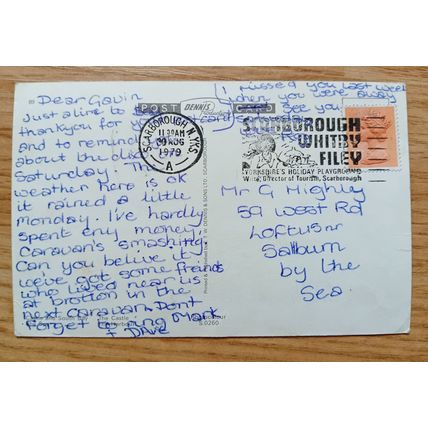 I missed you last week
when you were away
See you
Dear Gavin
Just a line to
thankyou for your card
and to remind
about the
Saturday. The
weather here is ok
it rained a little
monday. I've hardly
spent any money,
Caravan's smashing.
Can you belive it
we've got some friends
who lived near us
at brotton in the
next caravan. Dont
forget to ring Mark
+ DAVE
POST DENNIS CARD
SCARBOROUGH N. YKS.
11 30AM
AUG
1979
A
SCARBOROUGH
WHITBY
FILEY
YORKSHIRE'S HOLIDAY PLAYGROUND
Write: Director of Tourism, Scarborough
Mr G Highley
59 West Rd
Loftus nr
Saltburn
by the
Sea.
and South Bay The Castle
S.0260